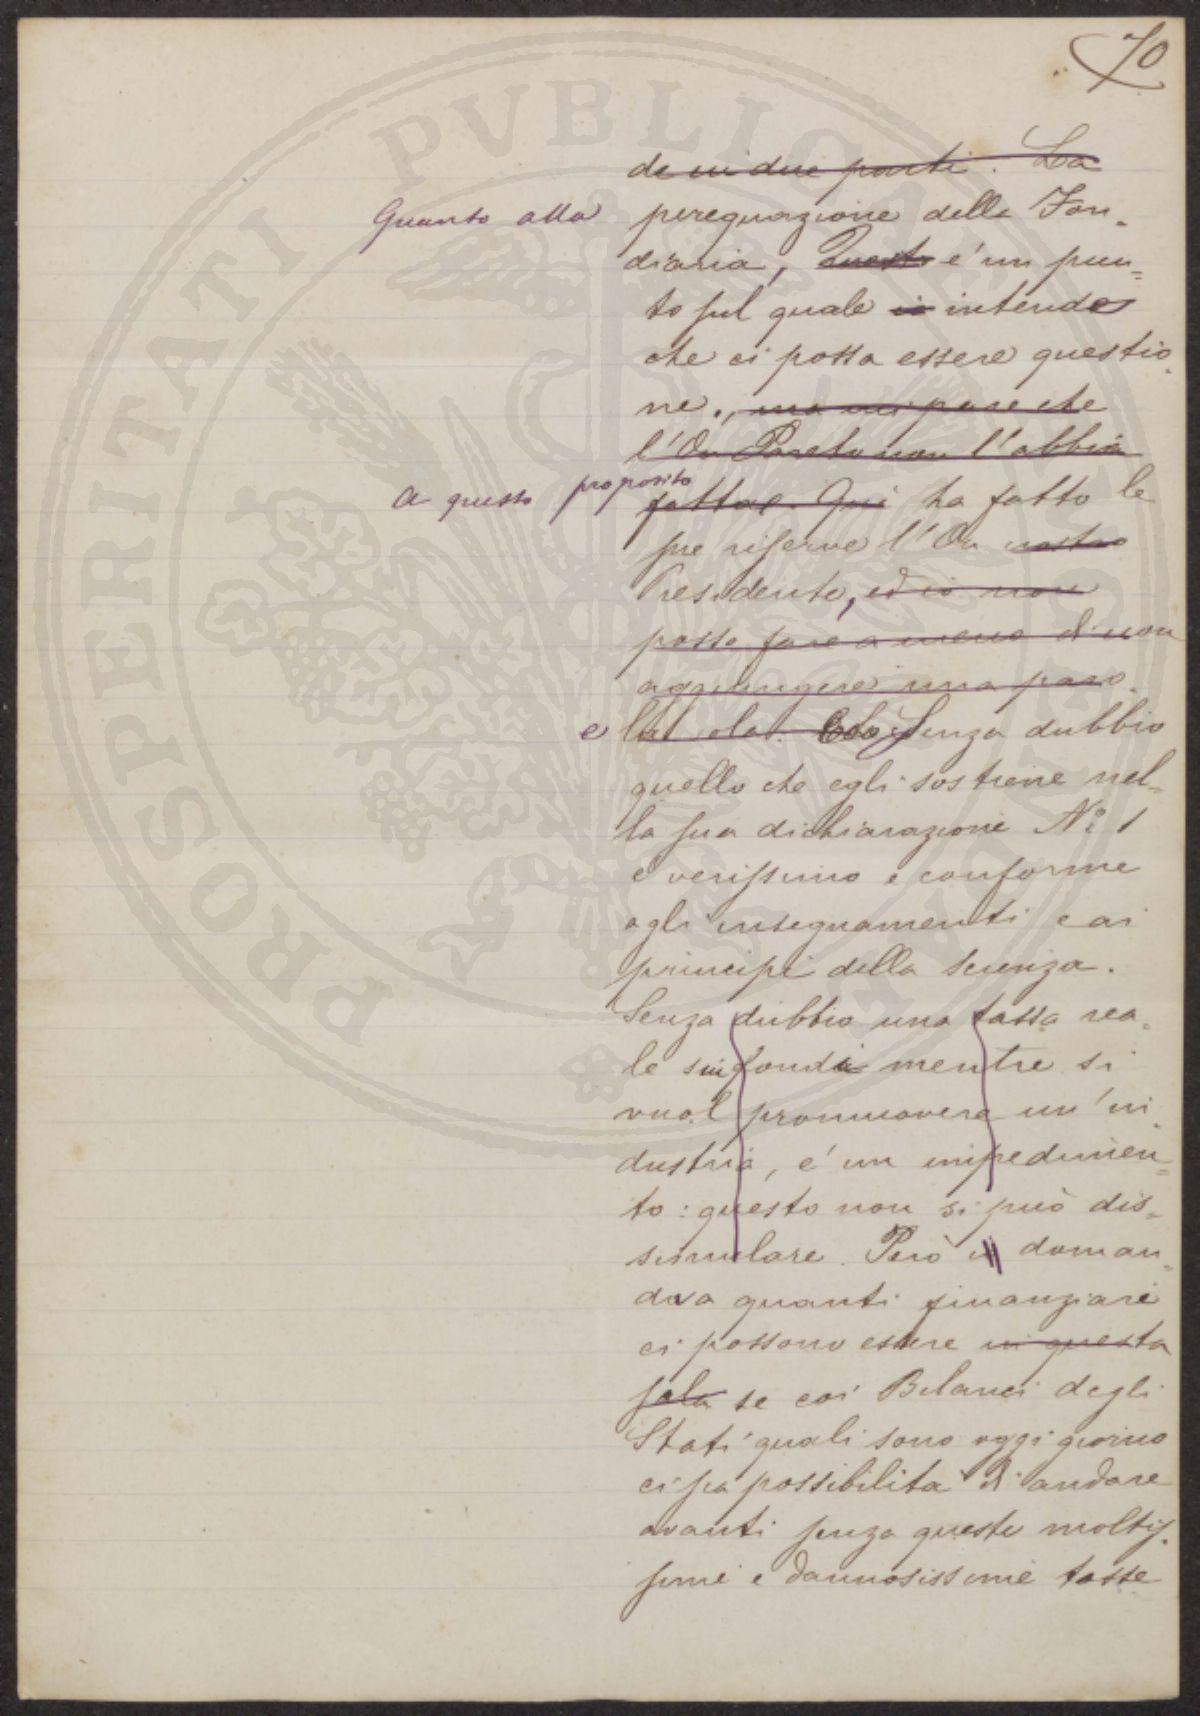 70
de in due parti. La
Quanto alla perequazione della Fon-
diaria, Questo e' un pun-
to sul quale io intendo
che ci possa essere questio-
ne., ma mi pare che
l'On Pareto non l'abbia
a questo proposito fatta. Qui ha fatto le
sue riserve l'On nostro
Presidente, ed io non
posso fare a meno di non
aggiungere una paro-
e la ola. Senza dubbio
quello che egli sostiene nel-
la sua dichiarazione No. 1
è verissimo e conforme
agli insegnamenti e ai
principi della scienza.
Senza dubbio una tassa rea-
le sui fondi mentre si
vuol promuovere un'in-
dustria, e' un impedimen-
to: questo non si può dis-
simulare. Però doman-
dava quanti finanziari
ci possono essere in questa
sala se coi Bilanci degli
Stati quali sono oggi giorno
ci sia possibilita di andare
avanti senza queste moltis-
sime e dannosissime tasse
PROSPERITATI PVBLICAE